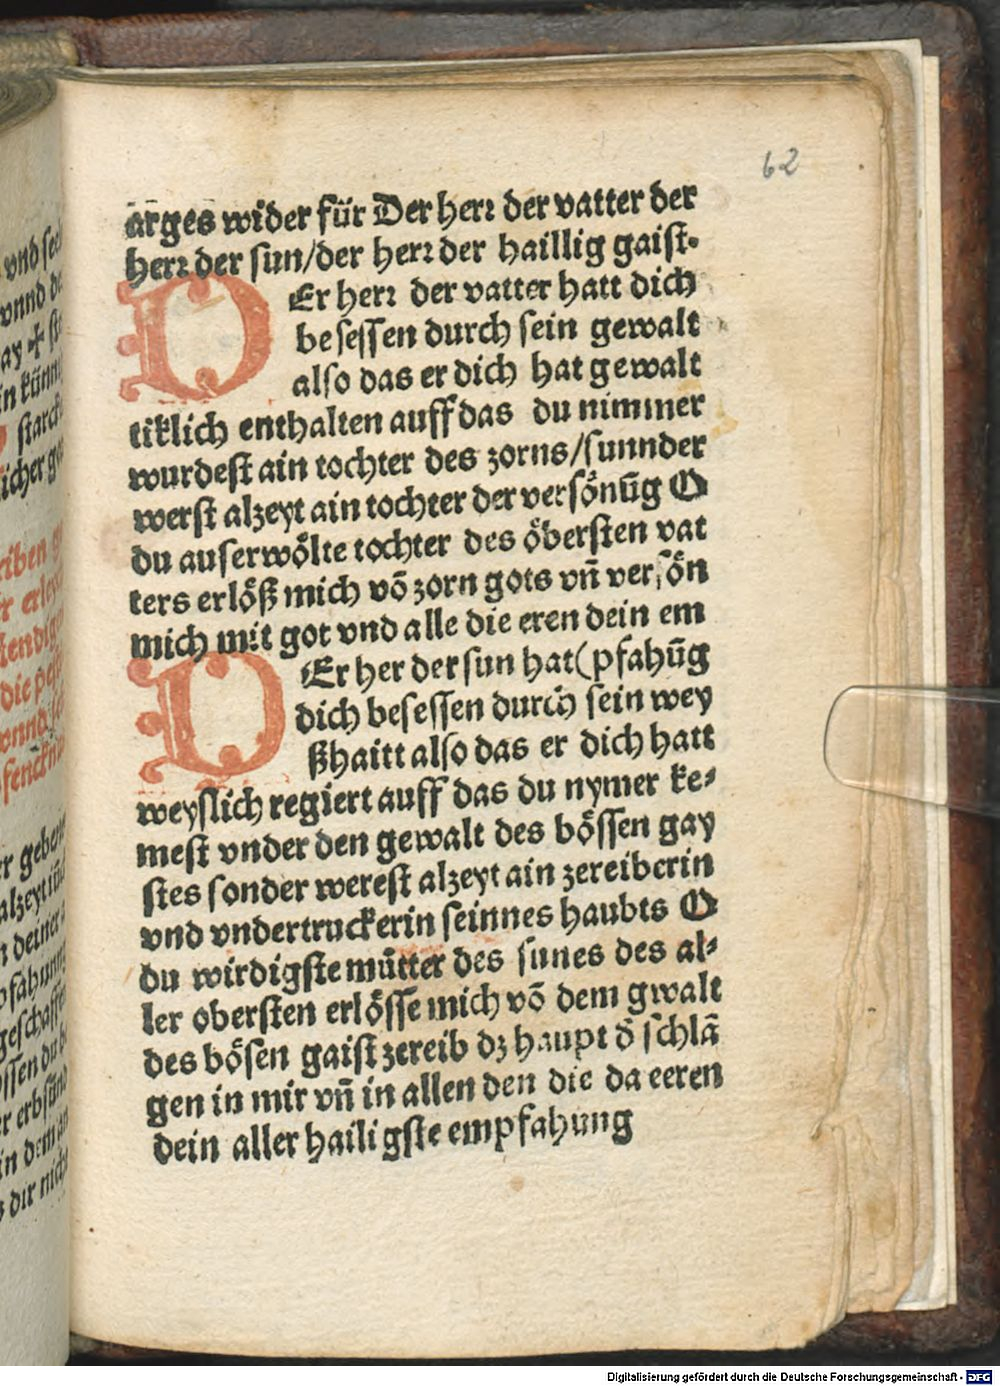 62
arges wider für Der herꝛ der vatter der
herꝛ der sun/der herꝛ der haillig gaist.
DEr herꝛ der vatter hatt dich
besessen durch sein gewalt
also das er dich hat gewalt
tiklich enthalten auff das du nimmer
wurdest ain tochter des zorns/sunnder
werst alzeyt ain tochter der versönūg O
du auserwölte tochter des öbersten vat
ters erlöß mich võ zorn gots vñ versön
mich mit got vnd alle die eren dein em
DEr her der sun hat (pfahūg
dich besessen durch sein wey
ßhaitt also das er dich hatt
weyslich regiert auff das du nymer ke⸗
mest vnder den gewalt des bössen gay
stes sonder werest alzeyt ain zereiberin
vnd vndertruckerin seinnes haubts O
du wirdigste můtter des sunes des al⸗
ler obersten erlösse mich võ dem gwalt
des bösen gaist zereib dz haupt d̕ schlã
gen in mir vñ in allen den die da eeren
dein aller hailigste empfahung
Digitalisierung gefördert durch die Deutsche Forschungsgemeinschaft - DFG